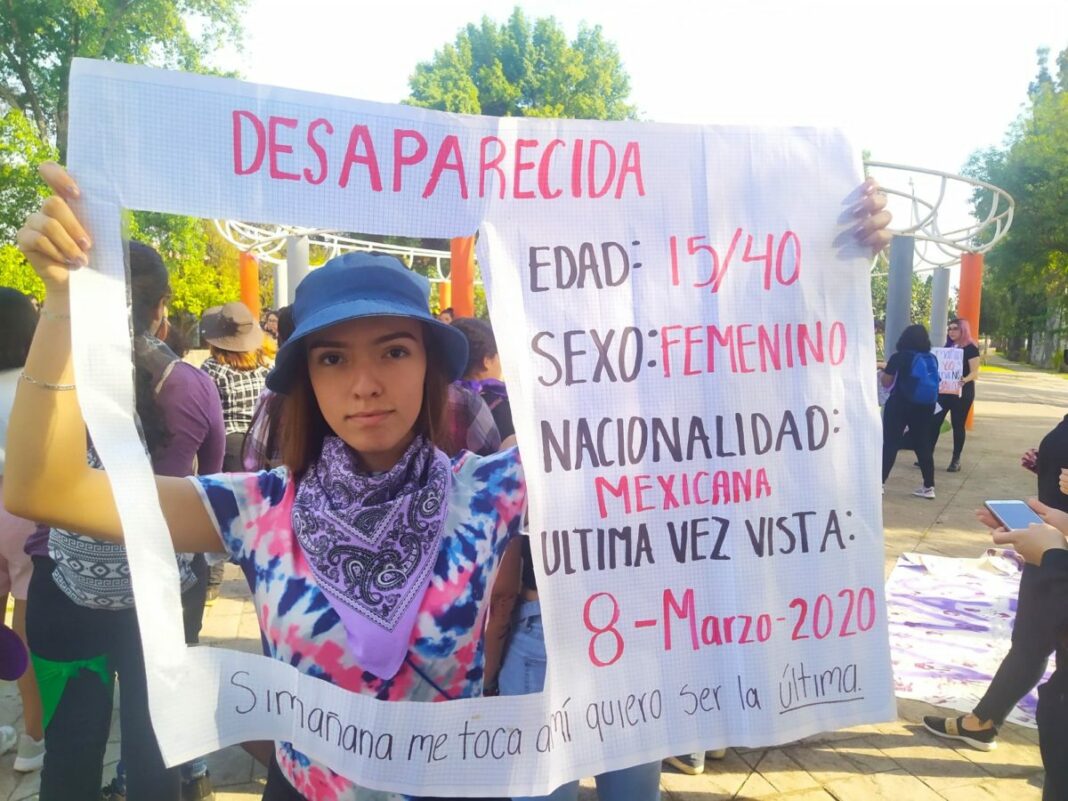 DESAPARECIDA
EDAD: 15/40
SEXO: FEMENINO
NACIONALIDAD:
MEXICANA
ULTIMA VEZ VISTA:
8-Marzo-2020
Si mañana me toca a mí quiero ser la última.